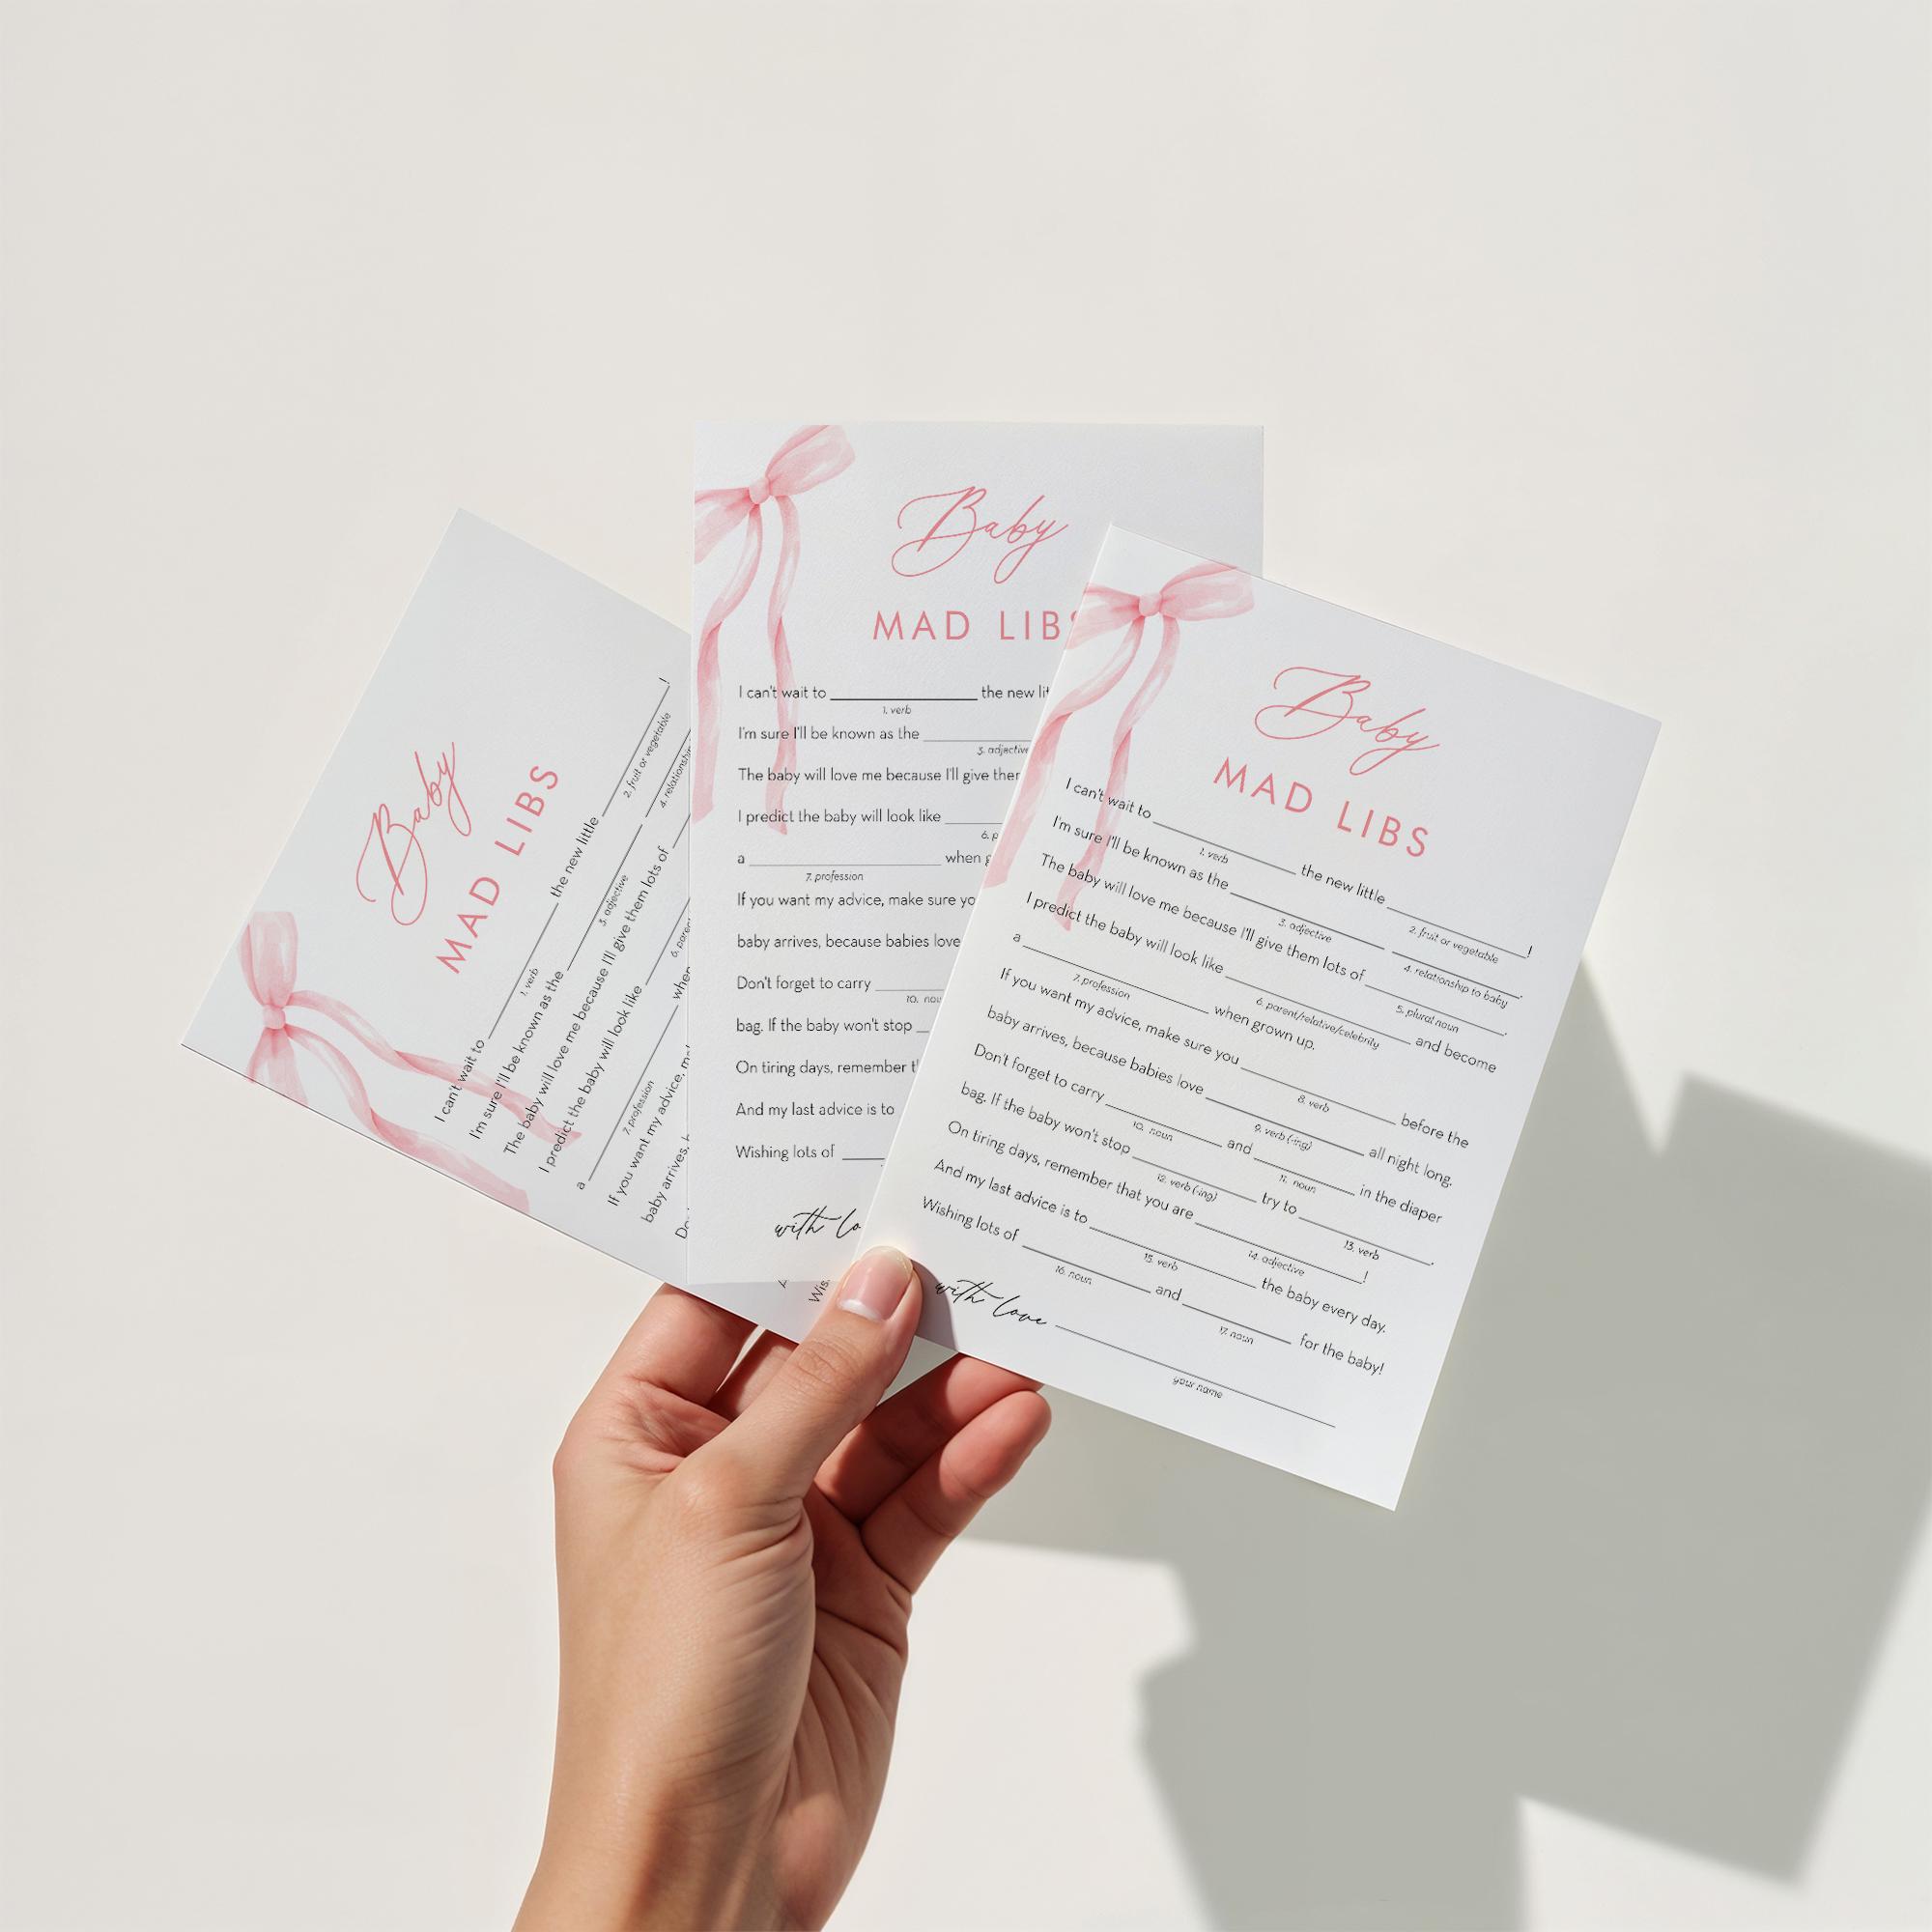 Baby
MAD LIBS
I can't wait to ____ the new little ____!
1. verb
2. fruit or vegetable
I'm sure I'll be known as the ____ ____
3. adjective
4. relationship
The baby will love me because I'll give them lots of ____
I predict the baby will look like ____
a ____ when
7. profession
If you want my advice,
baby arrives,
Baby
MAD LIBS
I can't wait to ____ the new
1. verb
I'm sure I'll be known as the ____
3. adjective
The baby will love me because I'll give
I predict the baby will look like ____
a ____ when
7. profession
If you want my advice, make sure
baby arrives, because babies love
Don't forget to carry ____
10.
bag. If the baby won't stop __
On tiring days, remember
And my last advice is to
Wishing lots of ____
with
Baby
MAD LIBS
I can't wait to ____ the new little ____!
1. verb
2. fruit or vegetable
I'm sure I'll be known as the ____ ____.
3. adjective
4. relationship to baby
The baby will love me because I'll give them lots of ____.
5. plural noun
I predict the baby will look like ____ and become
6. parent/relative/celebrity
a ____ when grown up.
7. profession
If you want my advice, make sure you ____ before the
8. verb
baby arrives, because babies love ____ all night long.
9. verb (-ing)
Don't forget to carry ____ and ____ in the diaper
10. noun
11. noun
bag. If the baby won't stop ____ try to ____.
12. verb (-ing)
13. verb
On tiring days, remember that you are ____!
14. adjective
And my last advice is to ____ the baby every day.
15. verb
Wishing lots of ____ and ____ for the baby!
16. noun
17. noun
with love ____
your name